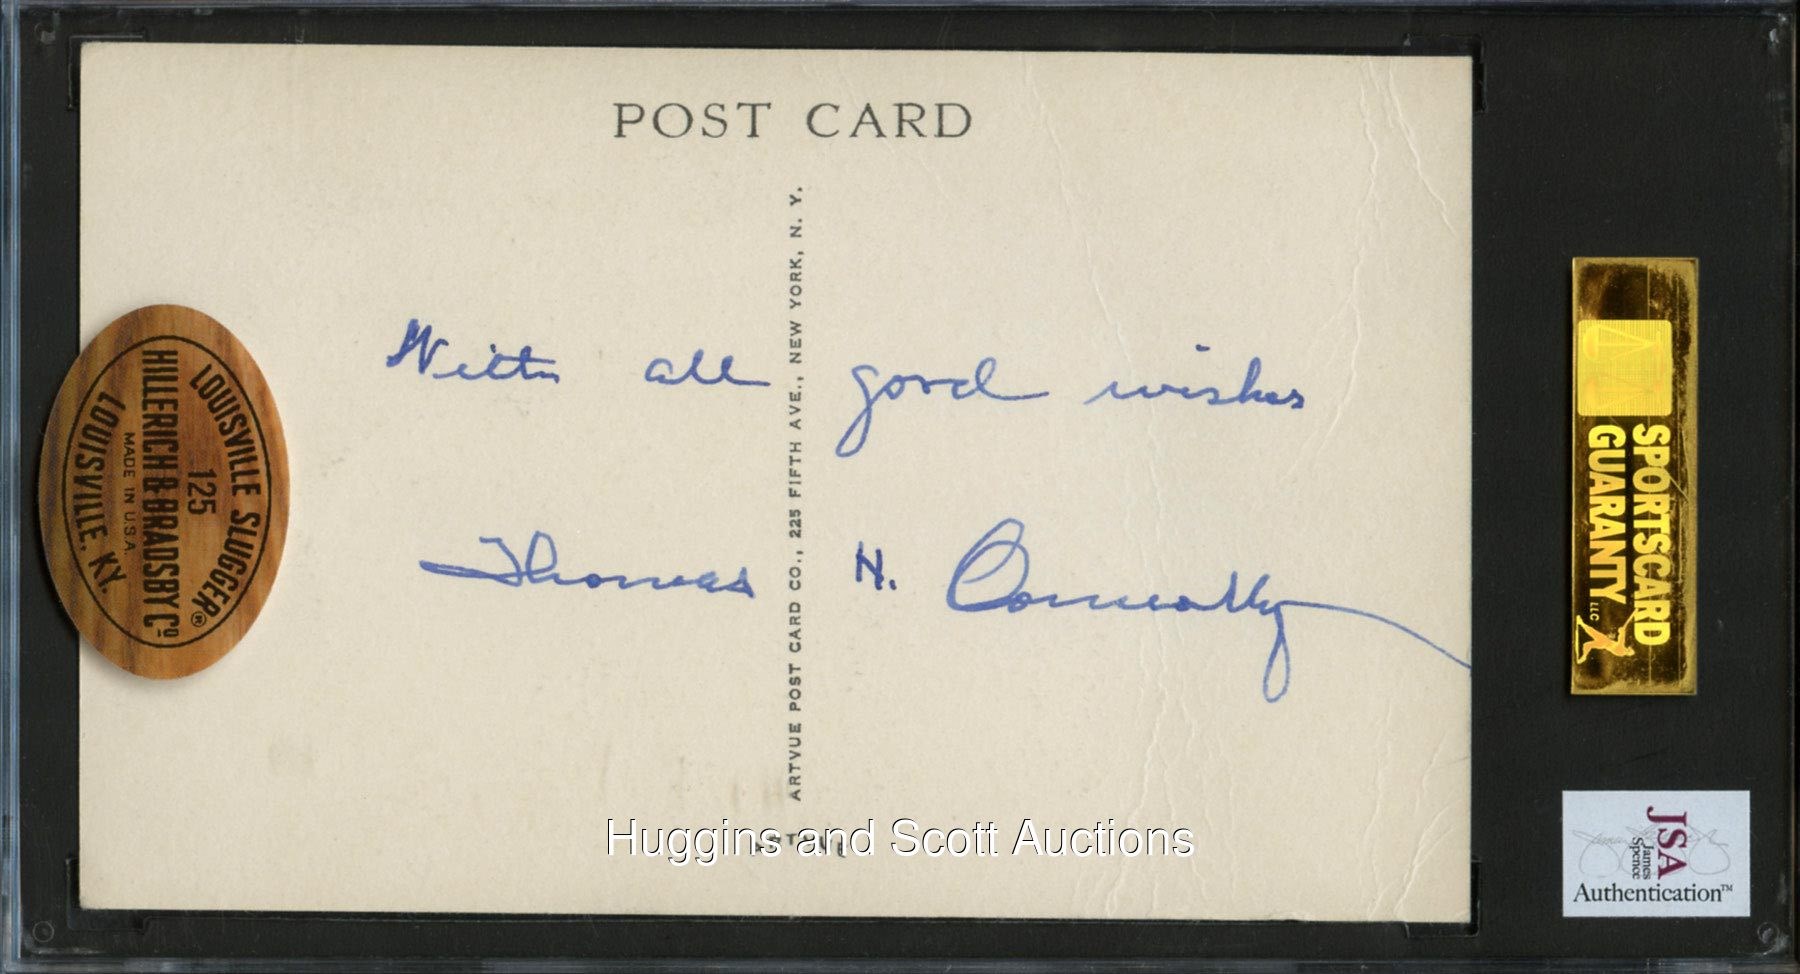 POST CARD
With all good wishes
Thomas H. Connolly
ARTVUE POST CARD CO., 225 FIFTH AVE., NEW YORK, N. Y.
LOUISVILLE SLUGGER®
125
HILLERICH & BRADSBY Cº
MADE IN U.S.A.
LOUISVILLE, KY.
SPORTSCARD
GUARANTY LLC
JSA
James
Spence
Authentication™
Huggins and Scott Auctions